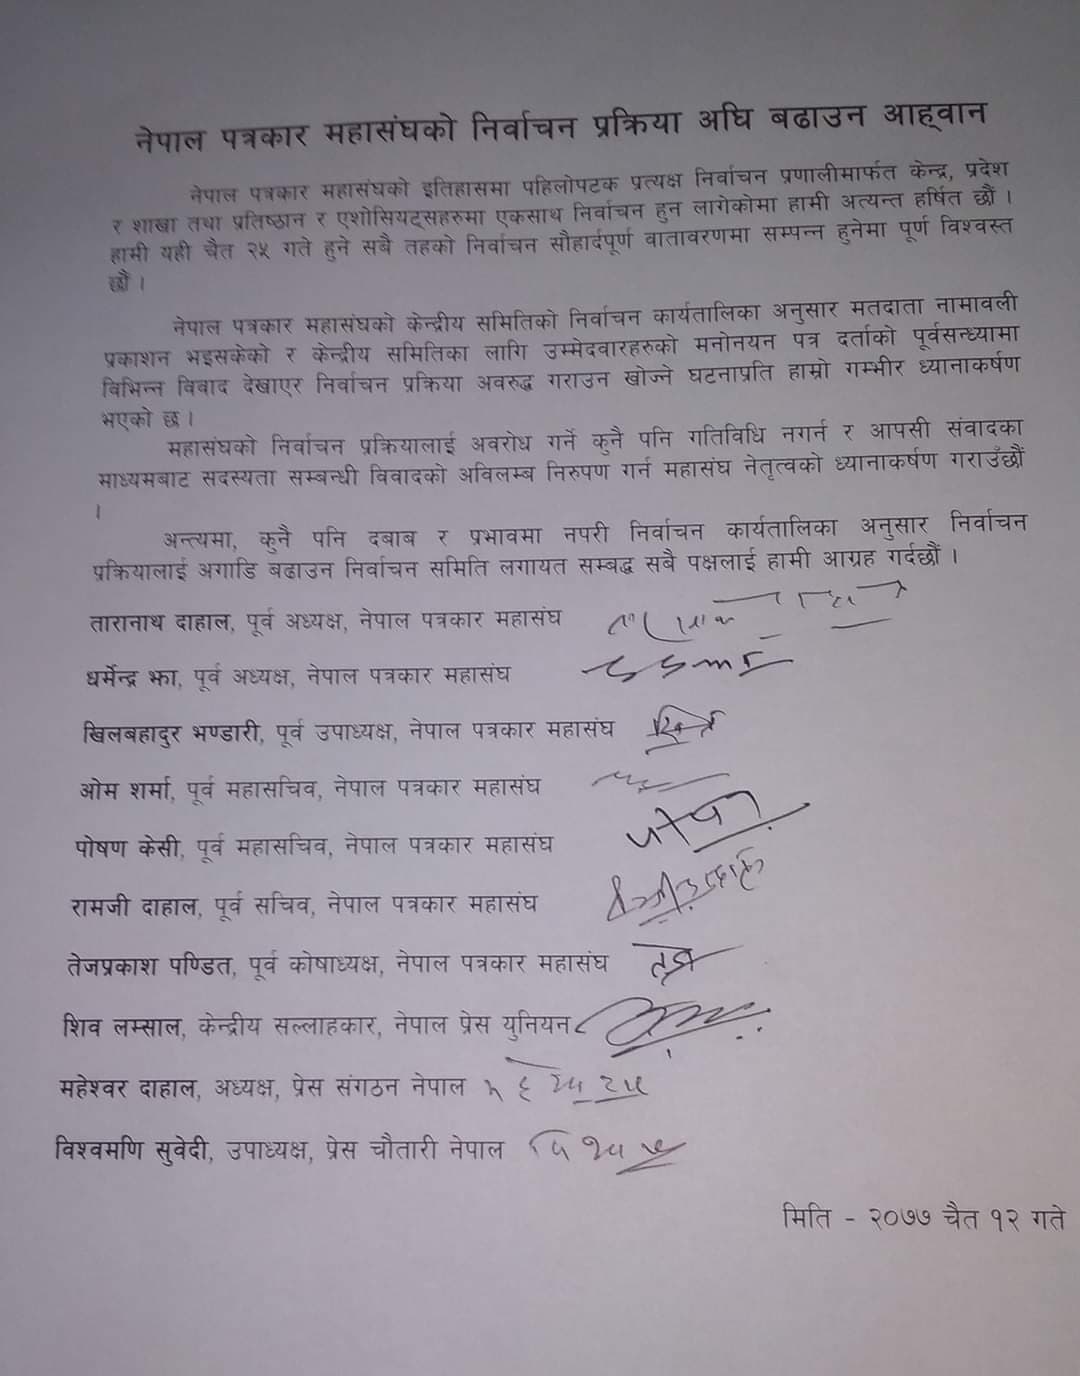 नेपाल पत्रकार महासंघको निर्वाचन प्रक्रिया अघि बढाउन आह्वान
नेपाल पत्रकार महासंघको इतिहासमा पहिलोपटक प्रत्यक्ष निर्वाचन प्रणालीमार्फत केन्द्र, प्रदेश
र शाखा तथा प्रतिष्ठान र एशोसियट्सहरुमा एकसाथ निर्वाचन हुन लागेकोमा हामी अत्यन्त हर्षित छौं ।
हामी यही चैत २५ गते हुने सबै तहको निर्वाचन सौहार्दपूर्ण वातावरणमा सम्पन्न हुनेमा पूर्ण विश्वस्त
छौं ।
नेपाल पत्रकार महासंघको केन्द्रीय समितिको निर्वाचन कार्यतालिका अनुसार मतदाता नामावली
प्रकाशन भइसकेको र केन्द्रीय समितिका लागि उम्मेदवारहरुको मनोनयन पत्र दर्ताको पूर्वसन्ध्यामा
विभिन्न विवाद देखाएर निर्वाचन प्रक्रिया अवरुद्ध गराउन खोज्ने घटनाप्रति हाम्रो गम्भीर ध्यानाकर्षण
भएको छ ।
महासंघको निर्वाचन प्रक्रियालाई अवरोध गर्ने कुनै पनि गतिविधि नगर्न र आपसी संवादका
माध्यमबाट सदस्यता सम्बन्धी विवादको अविलम्ब निरुपण गर्न महासंघ नेतृत्वको ध्यानाकर्षण गराउँछौं
।
अन्त्यमा, कुनै पनि दबाब र प्रभावमा नपरी निर्वाचन कार्यतालिका अनुसार निर्वाचन
प्रक्रियालाई अगाडि बढाउन निर्वाचन समिति लगायत सम्बद्ध सबै पक्षलाई हामी आग्रह गर्दछौं ।
तारानाथ दाहाल, पूर्व अध्यक्ष, नेपाल पत्रकार महासंघ
धर्मेन्द्र झा, पूर्व अध्यक्ष, नेपाल पत्रकार महासंघ
खिलबहादुर भण्डारी, पूर्व उपाध्यक्ष, नेपाल पत्रकार महासंघ
ओम शर्मा, पूर्व महासचिव, नेपाल पत्रकार महासंघ
पोषण केसी, पूर्व महासचिव, नेपाल पत्रकार महासंघ
रामजी दाहाल, पूर्व सचिव, नेपाल पत्रकार महासंघ
तेजप्रकाश पण्डित, पूर्व कोषाध्यक्ष, नेपाल पत्रकार महासंघ
शिव लम्साल, केन्द्रीय सल्लाहकार, नेपाल प्रेस युनियन
महेश्वर दाहाल, अध्यक्ष, प्रेस संगठन नेपाल
विश्वमणि सुवेदी, उपाध्यक्ष, प्रेस चौतारी नेपाल
मिति - २०७७ चैत १२ गते